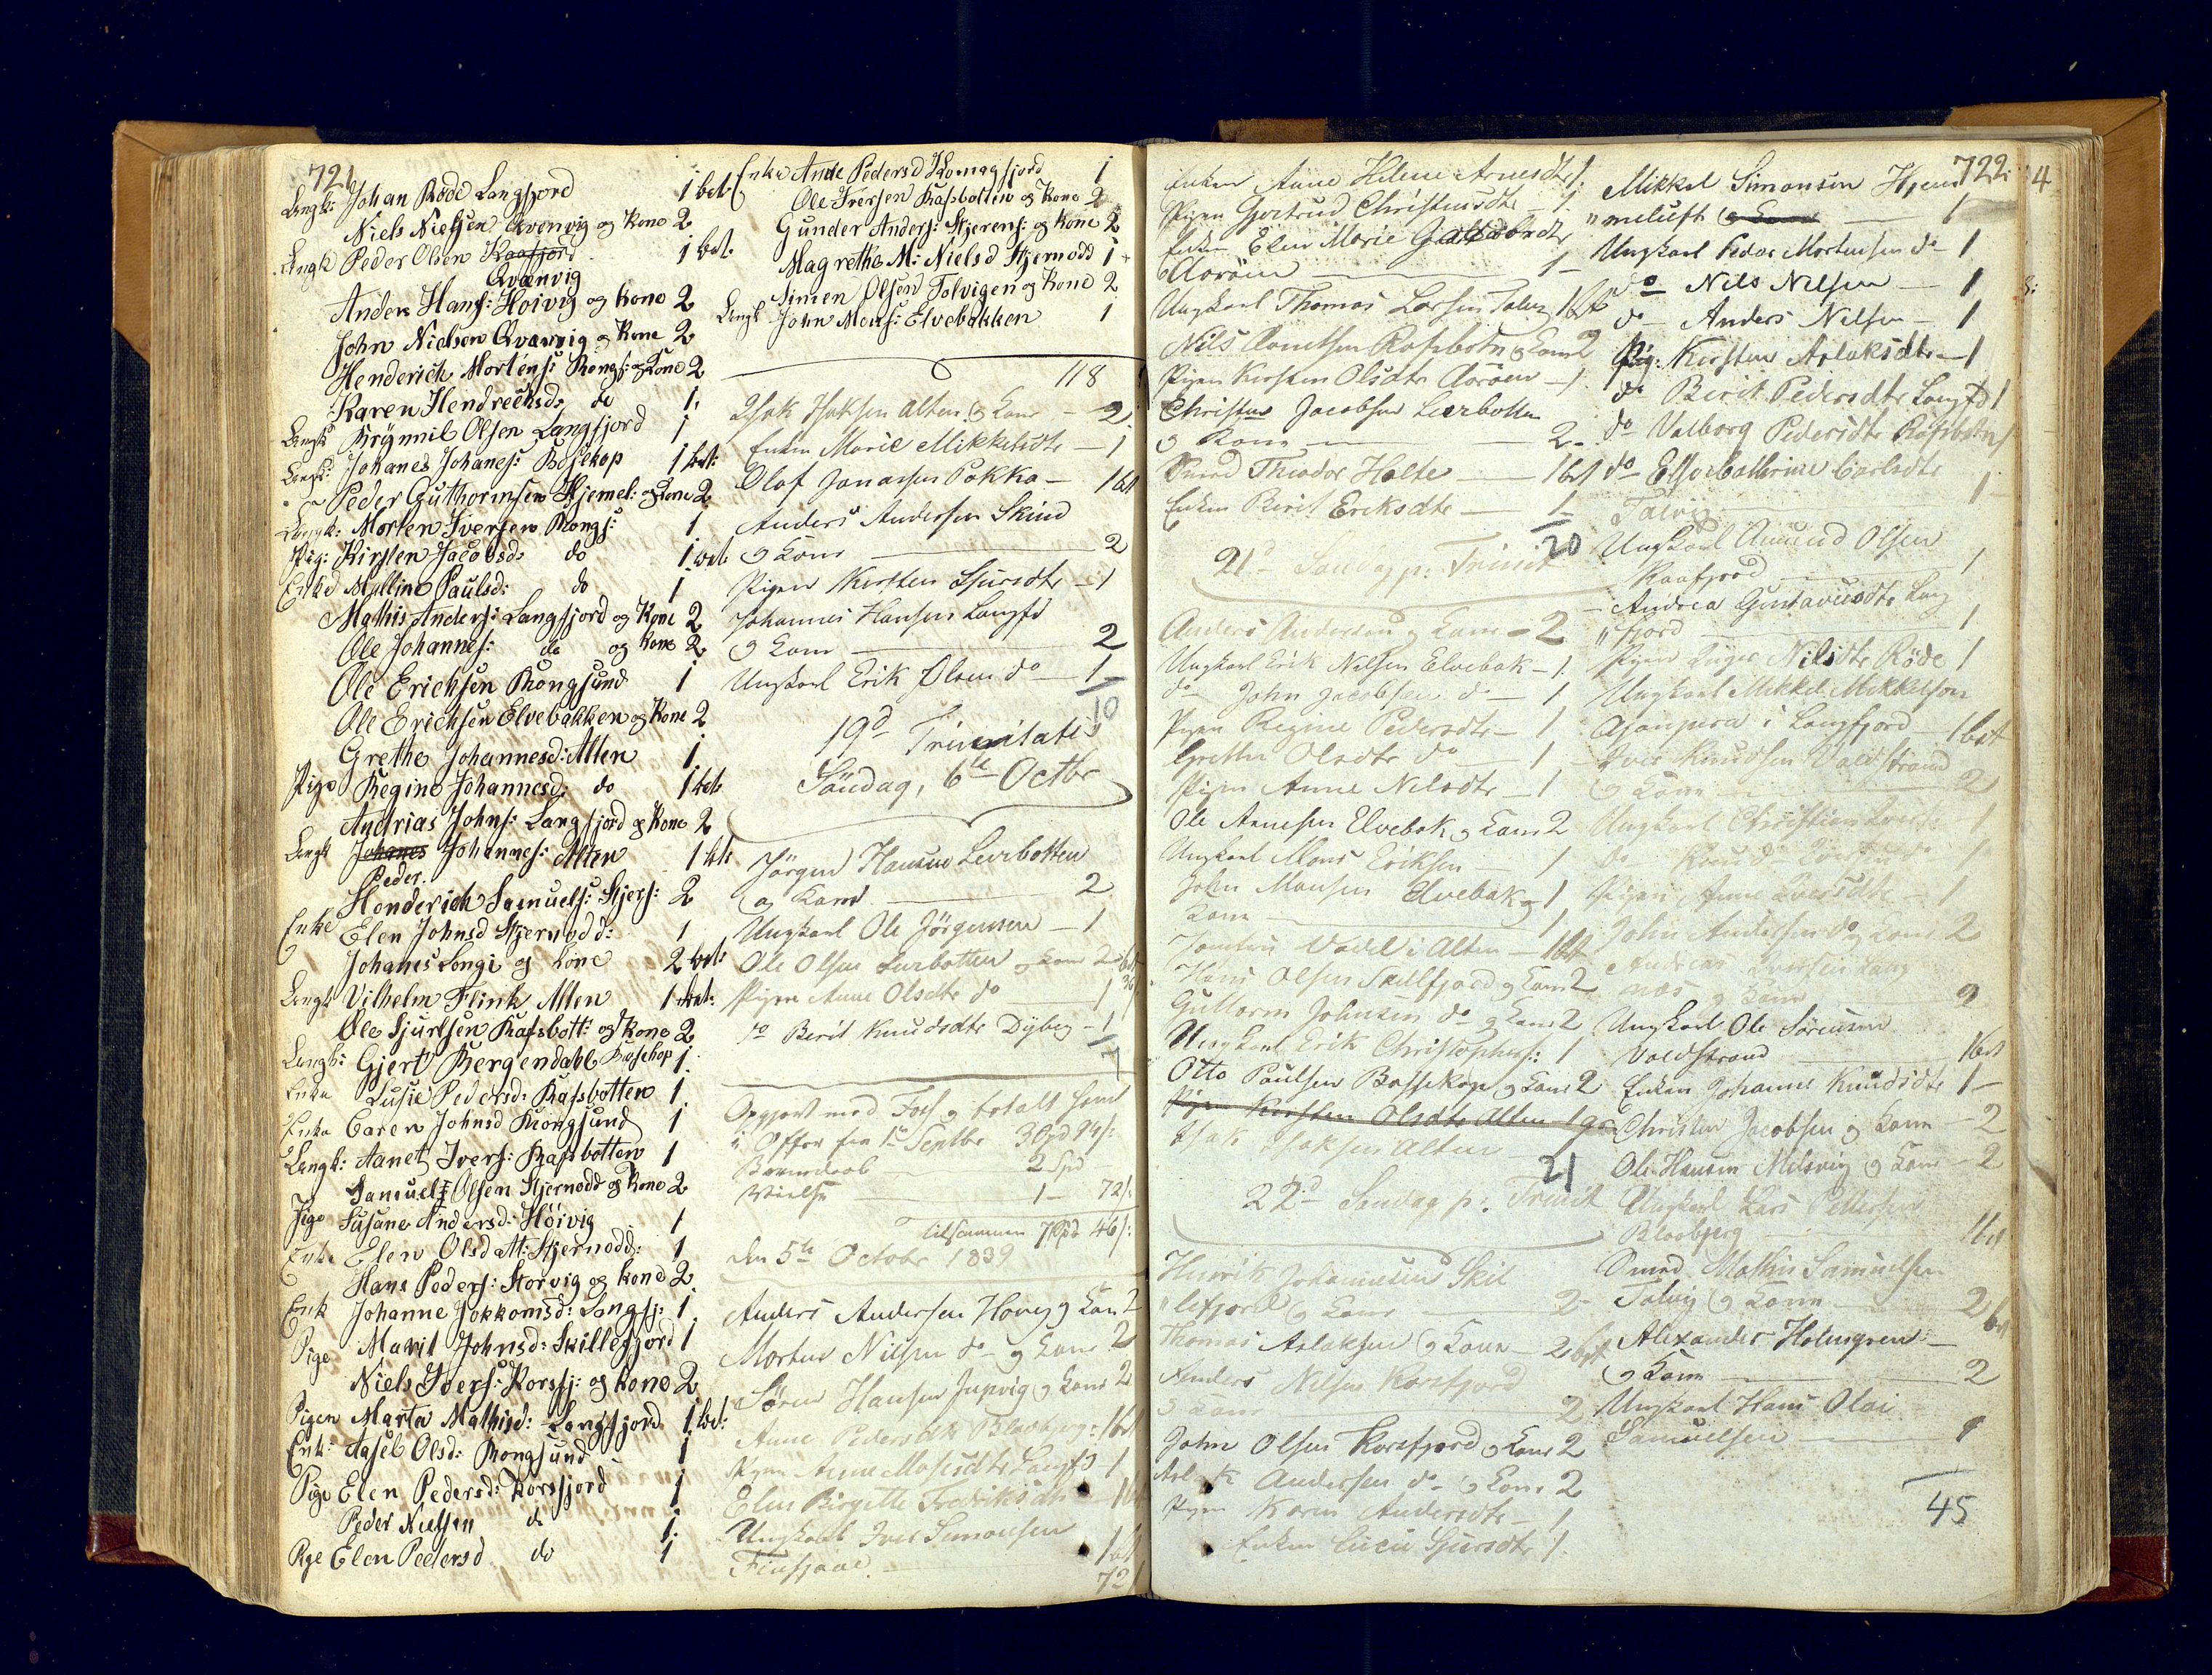 721
Lengk: Johan Röde Langfjord 1 bet
Niels Nielsen Qvenvig og Kone 2
Lengk Peder Olsen Kaafjord 1 bet.
Qvænvig
Anders Hans: Hoivig og Kone 2
John Nielsen Qvænvig og Kone 2
Henderich Mortens: Rongs: og Kone 2
Karen Hendrechsd: do 1
Lengk Brynnil Olsen Langfjord 1
Lengk: Johanes Johanes: Bosekop 1 bet:
Peder Guthormsen Stjernel: og Kone 2
Lengk: Morten Iversen Rongs: 1
Pig: Kirsten Jacobsd: do 1 bet
Enke Malline Paulsd: do 1
Mathis Anders: Langfjord og Kone 2
Ole Johannes: do og Kone 2
Ole Erichsen Rongsund 1
Ole Erichsen Elvebakken og Kone 2
Grethe Johannesd: Alten 1
Pige Regine Johannesd: do 1 bet
Andrias Johns: Langfjord og Kone 2
Lengk Johanes Johannes: Alten 1 bet
Peder.
Henderich Samuels: Stjers: 2
Enke Elen Johnsd Stjernodd: 1
Johanes Longi og Kone 2 bet:
Lengk Vilhelm Flink Alten 1 bet:
Ole Sjursen Rafsbott: og Kone 2
Lengk: Gjert Bergendahl Bosekop 1
Enke Lusie Pedersd: Rafsbotten 1
Enke Caren Johnsd Rongsund 1
Lengk: Aanet Ivers: Rafsbotten 1
Samuel Olsen Stjernodd og Kone 2
Pige Susane Andersd: Höivig 1
Enke Elen Olsdatt: Stjernodd: 1
Hans Peders: Storvig og Kone 2
Enk Johanne Jokkomsd: Langfj: 1
Pige Marit Johnsd: Skillefjord 1
Niels Ivers: Korsfj: og Kone 2
Pigen Marta Mathisd: Langfjord 1 bet:
Enk: Aasel Olsd: Rongsund 1
Pige Elen Pedersd: Korsfjord 1
Peder Nielsen do 1
Pige Elen Pedersd do 1
Enke Ane Pedersd Komagfjord 1
Ole Iversen Rafsbotten og Kone 2
Gunder Anders: Stjerens: og Kone 2
Magrethe M: Nielsd Stjernodd 1
Simen Olsen Tolvigen og Kone 2
Lengk John Mons: Elvebakken 1
118
Isak Isaksen Alten og Kone 2
Enken Marie Mikkelsdtr 1
Olof Jonassen Pokka 1 bet
Anders Andersen Skind
og Kone 2
Pigen Kirsten Sjursdtr 1
Johannes Hansen Langfd
og Kone 2
Ungkarl Erik Olsen do 1
10
19d Trinitatis
Söndag, 6te Octbr
Jörgen Hansen Leirbotten
og Kone 2
Ungkarl Ole Jörgensen 1
Ole Olsen Leirbotten og Kone 2 bt
Pigen Anne Olsdtr do 1
do Berit Knudsdtr Dybeg 1
7
Opgjort med Fosh og betalt ham
i Offer fra 1te Septbr 3 Spd 94 s:
Barnedaab 2 Spd
Vielse 1 72 s:
tilsammen 7 Spd 46 s:
den 5te Octobr 1839
Anders Andersen Hovey og Kone 2
Morten Nilsen do og Kone 2
Sören Hansen Jupvig og Kone 2
Anne Pedersdtr Blaabjerg: 1 bet
Pigen Anne Mosesdtr Langfd 1
Elen Birgitte Fredriksdtr
Ungkarl Iver Simonsen
Finfjaae. 1 bet
72
722
Enken Anne Helene Arnesdtr 1
Pigen Gjertrud Christensdtr 1
Enken Elen Marie
Aaröen 1
Ungkarl Thomas Larsen Talvig 1 bt
Nils Aanetsen Rafsbotn og Kone 2
Pigen Kirsten Olsdtr Aaröen 1
Christen Jacobsen Leerbotten
og Kone 2
Smed Theodor Holte 1 bet
Enken Berit Eriksdtr 1
20
21d Söndag p: Trinit
Anders Andersen og Kone 2
Ungkarl Erik Nilsen Elvebak 1
do John Jacobsen do 1
Pigen Regine Pedersdtr 1
Grethe Olsdtr do 1
Pigen Anne Nilsdtr 1
Ole Arnesen Elvebak og Kone 2
Ungkarl Mons Eriksen 1
John Monsen Elvebak og 1
Kone 1
Tomten Wadel i Alten 1 bt
Hans Olsen Skillfjord og Kone 2
Guttorm Johnsen do og Kone 2
Ungkarl Erik Christophers: 1
Otto Paulsen Bossekop og Kone 2
Pigen Kirsten Olsdtr Alten 1
Isak Isaksen Alten
21
22d Söndag p: Trinit
Henrik Johannesen Skil
"lefjord og Kone 2
Thomas Aslaksen og Kone 2 bet
Anders Nilsen Korsfjord
og Kone 2
John Olsen Korsfjord og Kone 2
Aslak Andersen do og Kone 2
Pigen Karen Andersdtr 1
Enken Lucie Sjursdtr 1
Mikkel Simonsen Hjem
"meluft og Kone 1
Ungkarl Peder Mortensen do 1
do Nils Nilsen 1
do Anders Nilsen 1
Pig: Kirsten Aslaksdtr 1
do Berit Pedersdtr Langfd 1
do Valborg Pedersdtr Rafsbotn 1
do Else Cathrine Carlsdtr
Talvig 1
Ungkarl Amund Olsen
Kaafjord 1
Andrea Gustavusdtr Lang
"fjord 1
Pigen Inger Nilsdtr Röde 1
Ungkarl Mikkel Mikkelsen
i Langfjord 1 bet
Iver Knudsen Valdstrand
og Kone 2
Ungkarl Christian Iversen 1
do Knud Iversen do 1
Pigen Anne Iversdtr 1
John Andersen do og Kone 2
Andreas Iversen Lang
næs og Kone 2
Ungkarl Ole Sörensen
Valdstrand 1 bet
Enken Johanne Knudsdtr 1
Christen Jacobsen og Kone 2
Ole Hansen Melsvig og Kone 2
Ungkarl Lars Pettersen
Blaabjerg 1 bet
Smed Mathis Samuelsen
Talvig og Kone 2 bet
Alexander Holmgren
og Kone 2
Ungkarl Hans Olai
Samuelsen 1
45
4